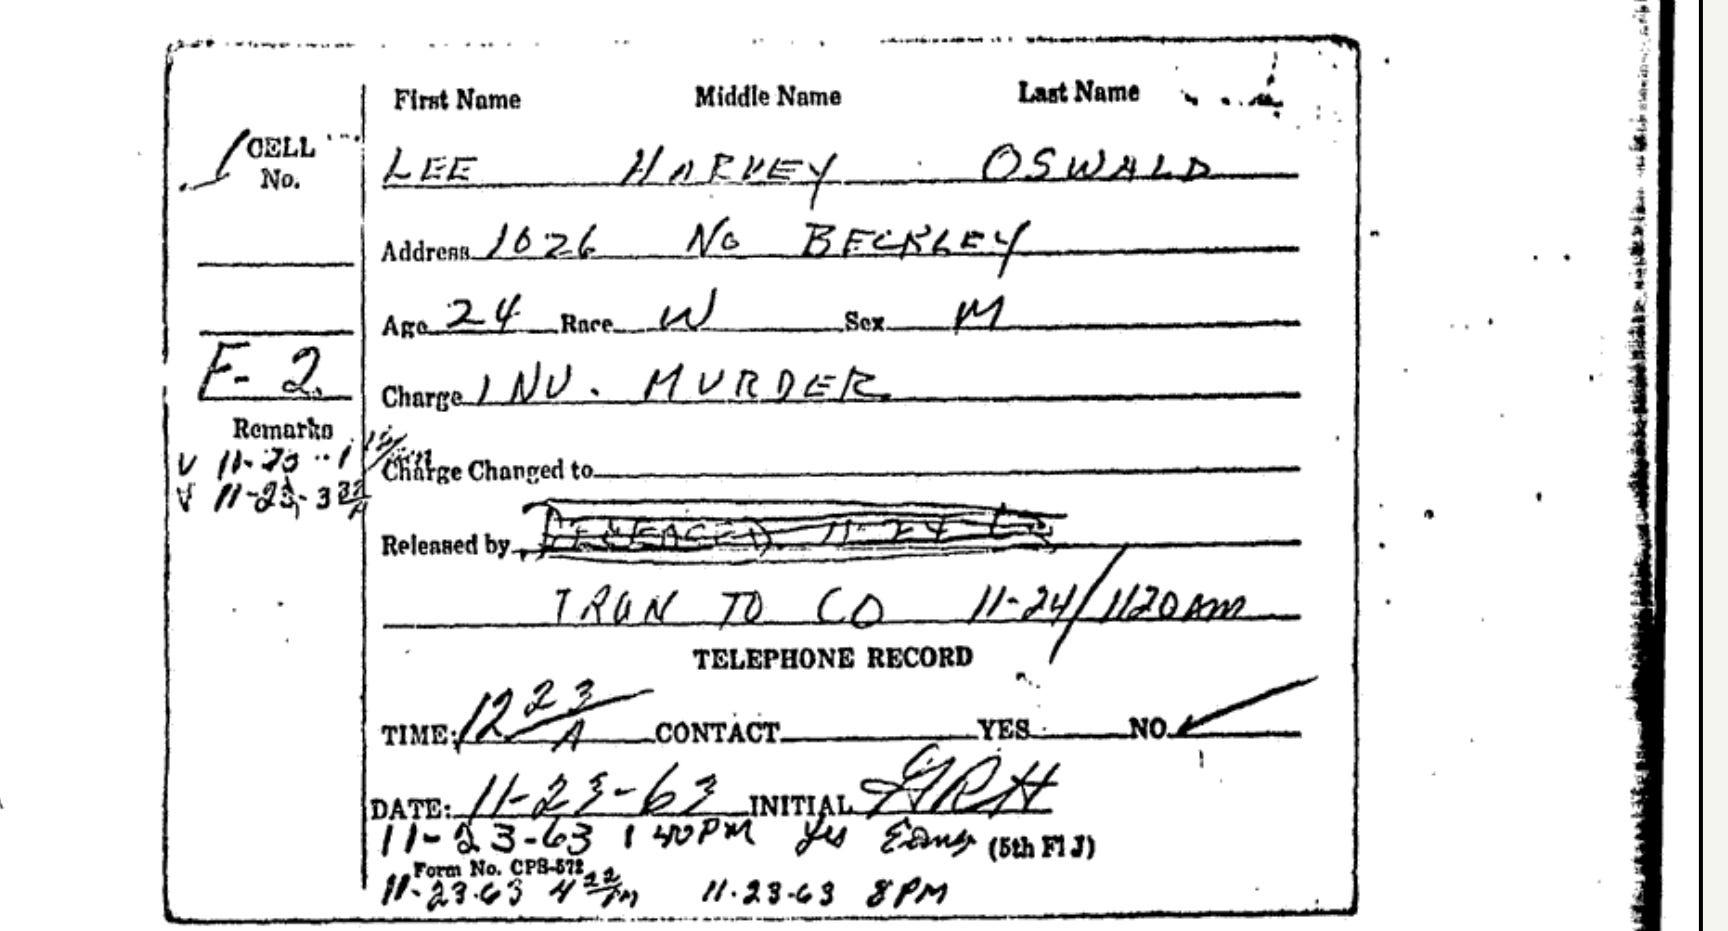 First Name Middle Name Last Name
CELL No.
LEE HARVEY OSWALD
Address 1026 No BECKLEY
Age 24 Race W Sex M
F- 2
Charge INV. MURDER
Remarks
V 11-23
V 11-23-3
Charge Changed to
Released by RELEASED 11-24
TRAN TO CO 11-24/1120AM
TELEPHONE RECORD
TIME: 12 23 A CONTACT YES NO ✓
DATE: 11-23-63 INITIAL
11-23-63 1 40 PM Yes (5th Fl J)
Form No. CPS-572
11-23-63 4 22 PM 11-23-63 8 PM